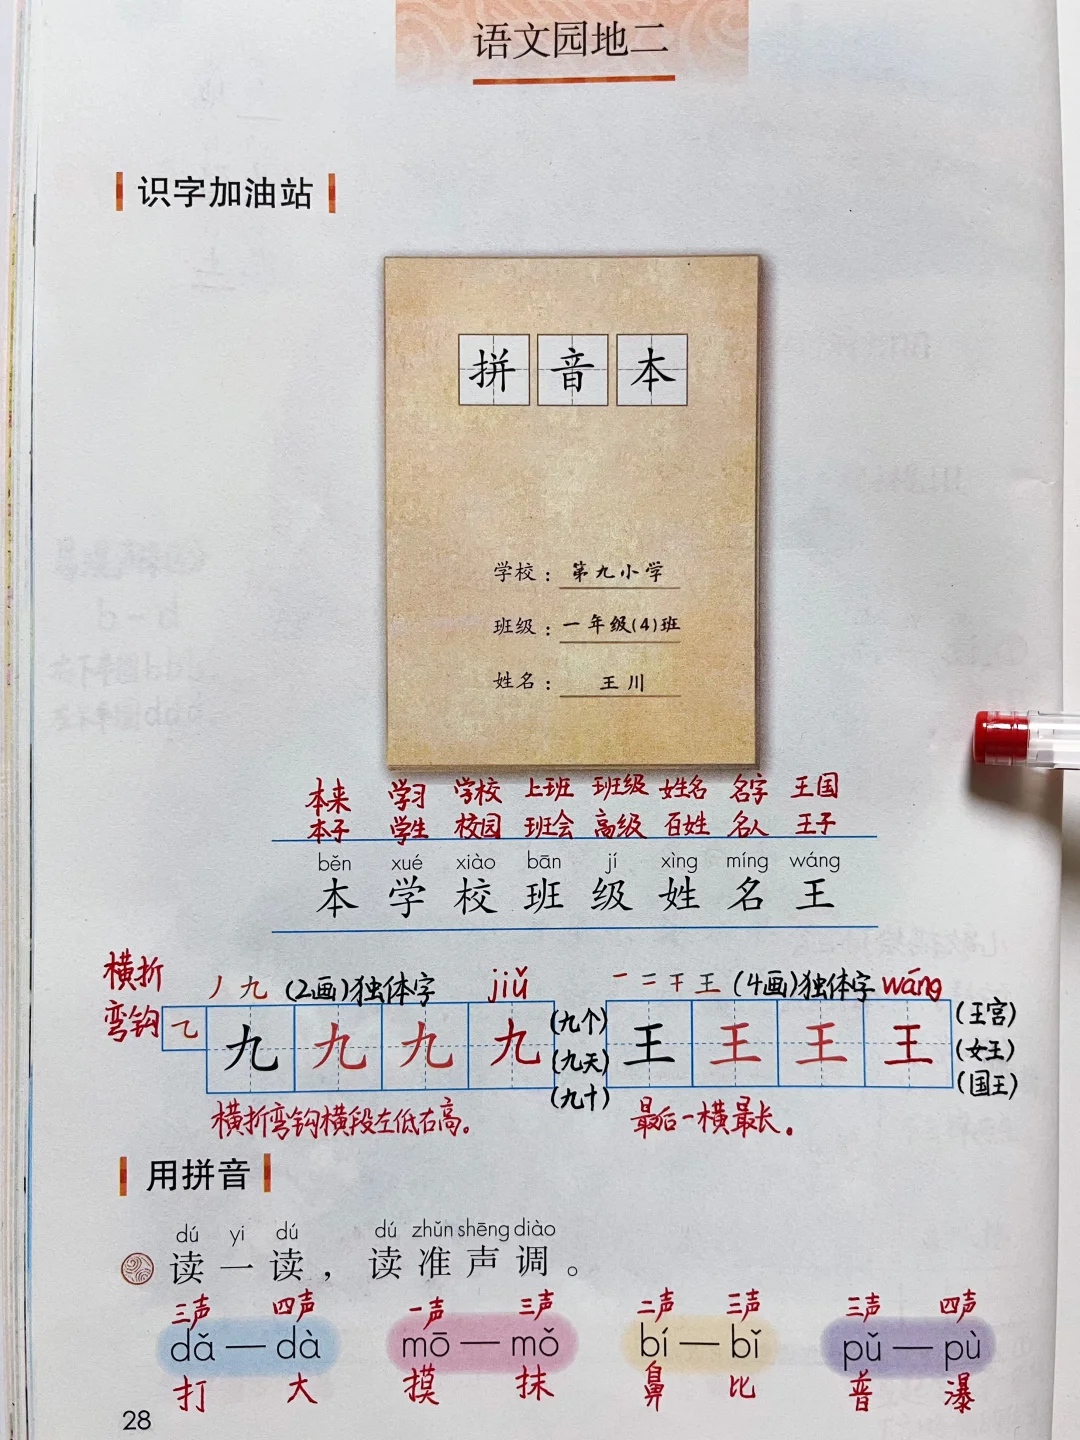 语文园地二
识字加油站
拼音本
学校：第九小学
班级：一年级(4)班
姓名：王川
本来 学习 学校 上班 班级 姓名 名字 王国
本子 学生 校园 班会 高级 百姓 名人 王子
běn xué xiào bān jí xìng míng wáng
本 学 校 班 级 姓 名 王
横折
弯钩
丿 九 (2画)独体字 jiǔ
九 九 九 九
(九个)
(九天)
(九十)
横折弯钩横段左低右高。
一 二 干 王 (4画)独体字 wáng
王 王 王 王
(王宫)
(女王)
(国王)
最后一横最长。
用拼音
dú yi dú dú zhǔn shēng diào
读一读，读准声调。
三声 四声 一声 三声 二声 三声 三声 四声
dǎ — dà mō — mǒ bí — bǐ pǔ — pù
打 大 摸 抹 鼻 比 普 瀑
28